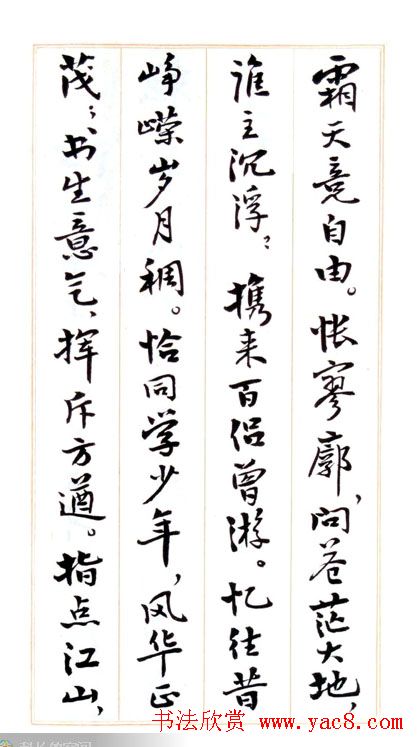 霜天竞自由。怅寥廓，问苍茫大地，
谁主沉浮？携来百侣曾游。忆往昔
峥嵘岁月稠。恰同学少年，风华正
茂；书生意气，挥斥方遒。指点江山，
书法欣赏 www.yac8.com